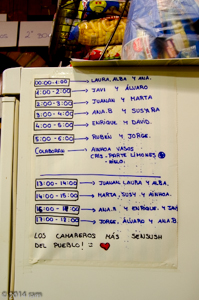 00:00-1:00 → LAURA, ALBA Y ANA.
1:00-2:00 → JAVI Y ÁLVARO
2:00-3:00 → JUANAN Y MARTA
3:00-4:00 → ANA.B Y SUSY
4:00-5:00 → ENRIQUE Y DAVID.
5:00-6:00 → RUBÉN Y JORGE.
COLABORAN → AINHOA VASOS
CRIS. PORTE LIMONES
HIELO.
13:00-14:00 → JUANAN, LAURA Y ALBA.
14:00-15:00 → MARTA, SUSY Y AINHOA.
16:00-17:00 → ANA.B Y ENRIQUE. Y JAVI
17:00-18:00 → JORGE, ÁLVARO Y ANA.B
LOS CAMAREROS MÁS SENSUSH
DEL PUEBLO! = ♥
© 2014